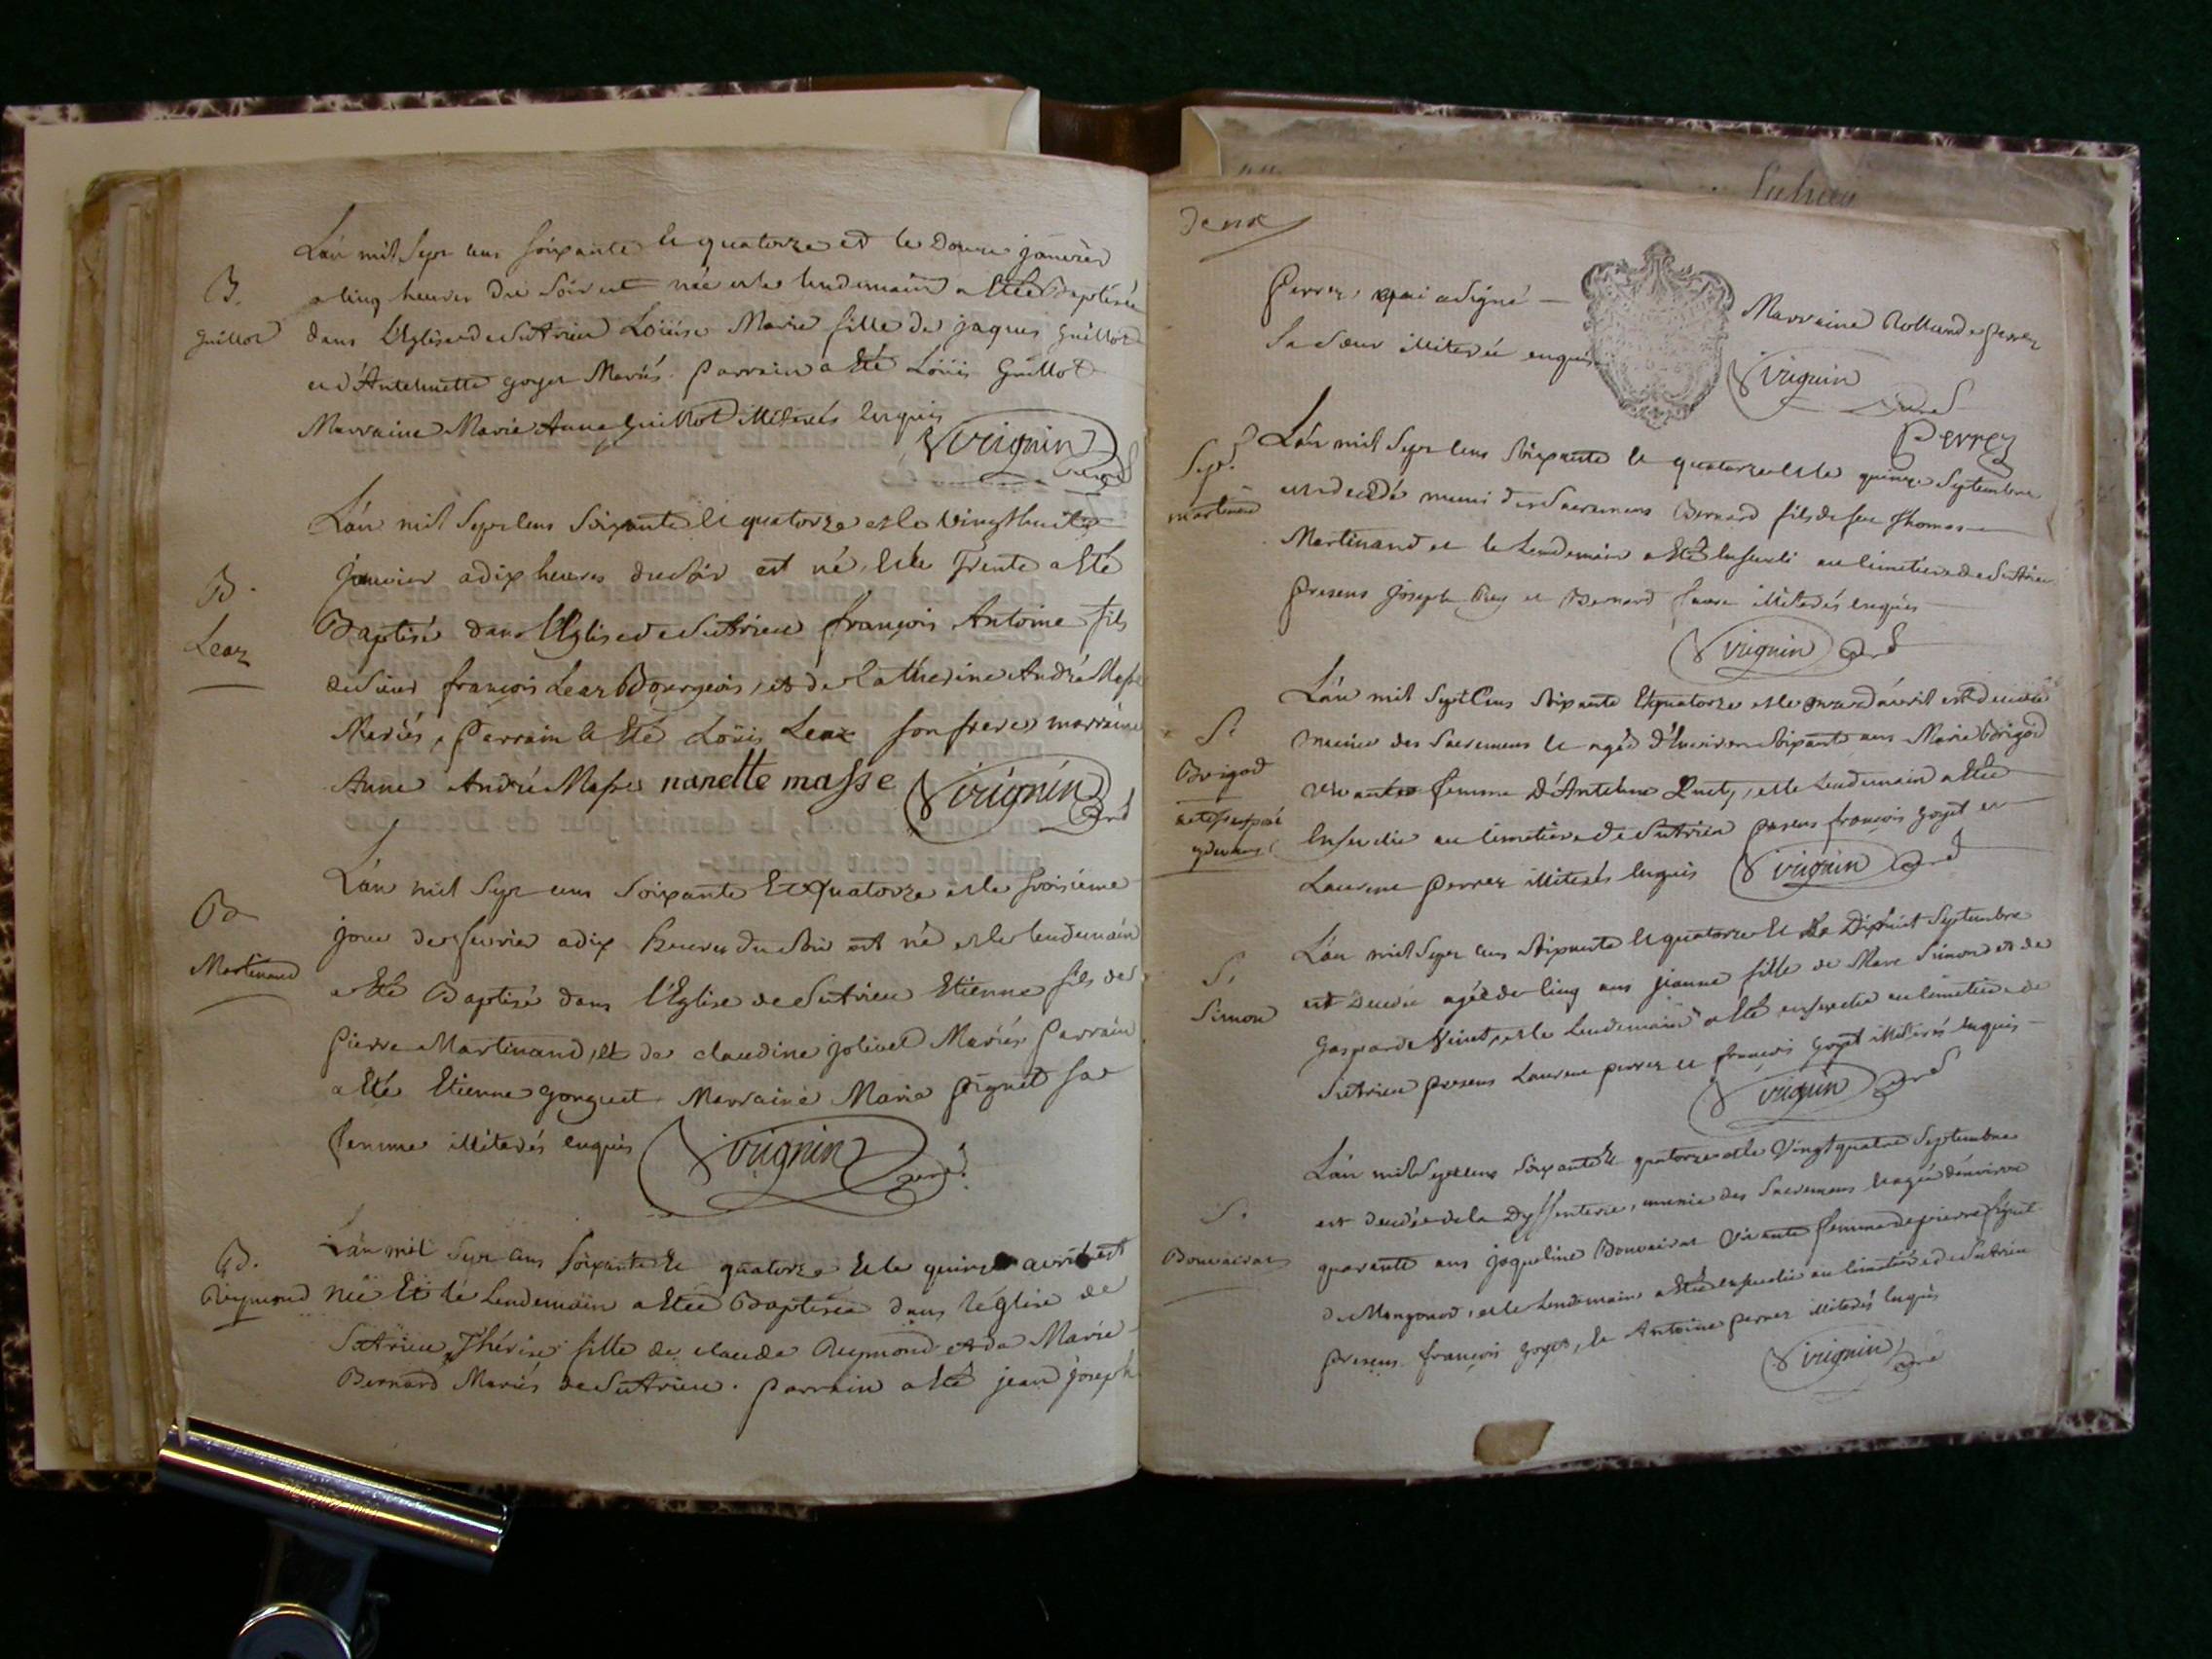 L'an mil sept cens soixante et quatorze et le douze janvier
B.
a cinq heures du soir est née et le lendemain a Eté Baptisée
Guillot
dans l'Eglise de Sutrieu Loüise Marie fille de jaques Guillot
et d'Antelmette goyet Mariés. Parrain a Eté Loüis Guillot
Marraine Marie Anne Guillot illiterés Enquis
Virignin Curé
L'an mil sept cens soixante et quatorze et le vingt huit
janvier a dix heures du soir est né, et le Trente a Eté
B.
Lear
Baptisé dans l'Eglise de Sutrieu françois Antoine fils
de Sieur françois Lear Bourgeois, et de Catherine André Masse
Mariés, Parrain a Eté Loüis Lear son frere marraine
Anne André Masse nanette masse Virignin Curé
L'an mil sept cens soixante Et quatorze et le troisième
B
jour de fevrier a dix heures du soir est né et le lendemain
Martinand
a Eté Baptisé dans l'Eglise de Sutrieu Etienne fils de
Pierre Martinand, et de claudine jolivet Mariés Parrain
a Eté Etienne gonguet Marraine Marie pignet sa
femme illiterés enquis Virignin Curé
L'an mil sept cens soixante et quatorze Et le quinze avril est
B.
Reymond
née Et le Lendemain a Etée Baptisée dans l'église de
Sutrieu Thérèse fille de claude Reymond et de Marie
Bernard Mariés de Sutrieu. Parrain a Eté jean joseph
Deux
Perrez qui a signé — Marraine Rollande perrez
Sa Sœur illiterée enquise Virignin Curé
Perrez
L'an mil sept cens soixante et quatorze et le quinze Septembre
Sep.
martinand
est decedé muni des Sacremens Bernard fils de feu Thomas
Martinand et le Lendemain a Eté Enseveli au cimetiere de Sutrieu
Presens joseph Rey et Bernard favre illiterés enquis
Virignin Curé
L'an mil Sept Cens soixante Et quatorze et le onze d'avril est decedée
S.
munie des Sacremens et agée d'Environ soixante ans Marie Brigod
Brigod
vivante femme d'Antelme, et le Lendemain a Etée
Ensevelie au cimetiere de Sutrieu presens françois goyet et
Laurent Perrez illiterés Enquis Virignin Curé
L'an mil Sept cens soixante et quatorze et le Dixhuit Septembre
S.
est decedée agée de cinq ans jeanne fille de Marc Simond et de
Simon
Gasparde Vinet, et le Lendemain a Eté ensevelie au cimetiere de
Sutrieu presens Laurent perrez et françois goyet illiterés enquis
Virignin Curé
L'an mil Sept cens soixante et quatorze et le Vingt quatre Septembre
S.
est decedée de la Dyssenterie, munie des Sacremens et agée d'environ
Bonvairat
quarante ans jaqueline Bonvairat Vivante femme de pierre pignet
de Mongonod, et le Lendemain a Eté ensevelie au cimetiere de Sutrieu
presens françois goyet, et Antoine perrez illiterés Enquis
Virignin Curé